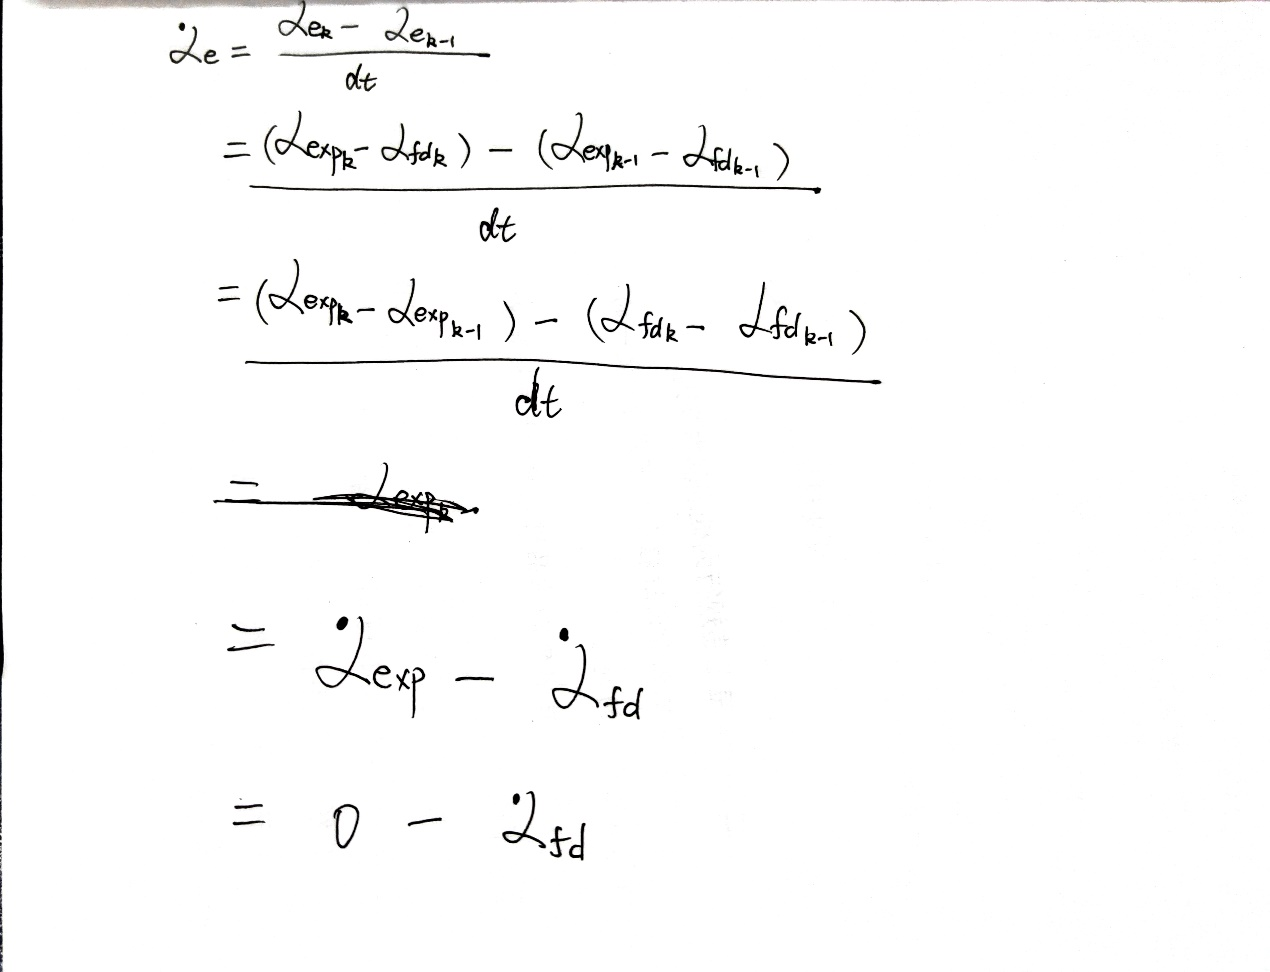 α̇e = (αek - αek-1) / dt
= ((αexpk - αfdk) - (αexpk-1 - αfdk-1)) / dt
= ((αexpk - αexpk-1) - (αfdk - αfdk-1)) / dt
= αexpk
= α̇exp - α̇fd
= 0 - α̇fd